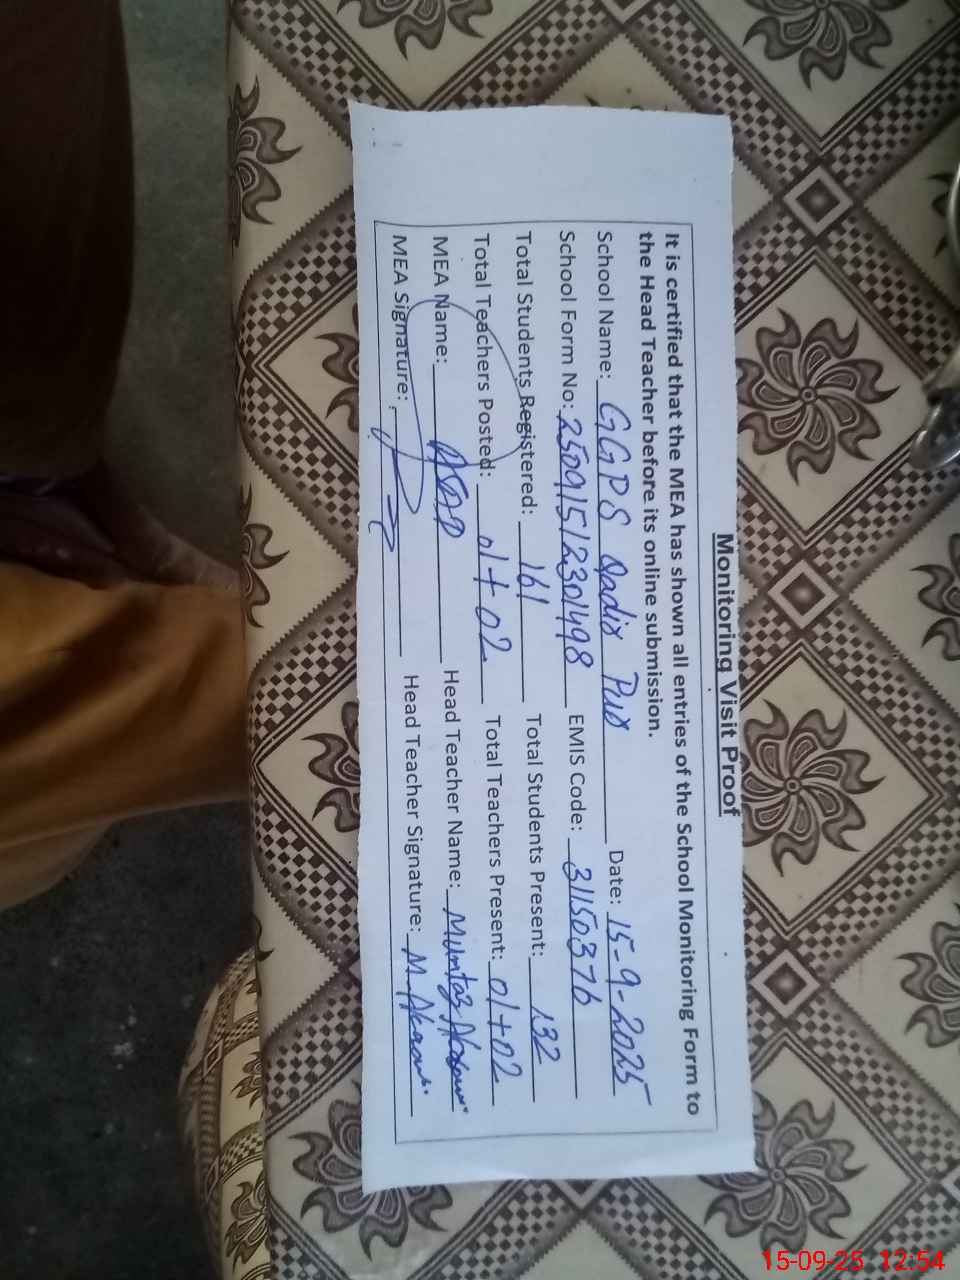 Monitoring Visit Proof
It is certified that the MEA has shown all entries of the School Monitoring Form to
the Head Teacher before its online submission.
School Name: GGPS Qadir Pur Date: 15-9-2025
School Form No: 25091512301498 EMIS Code: 31150376
Total Students Registered: 161 Total Students Present: 132
Total Teachers Posted: 01+02 Total Teachers Present: 01+02
MEA Name: Asad Head Teacher Name: Mumtaz
MEA Signature: Head Teacher Signature: M.
15-09-25 12:54